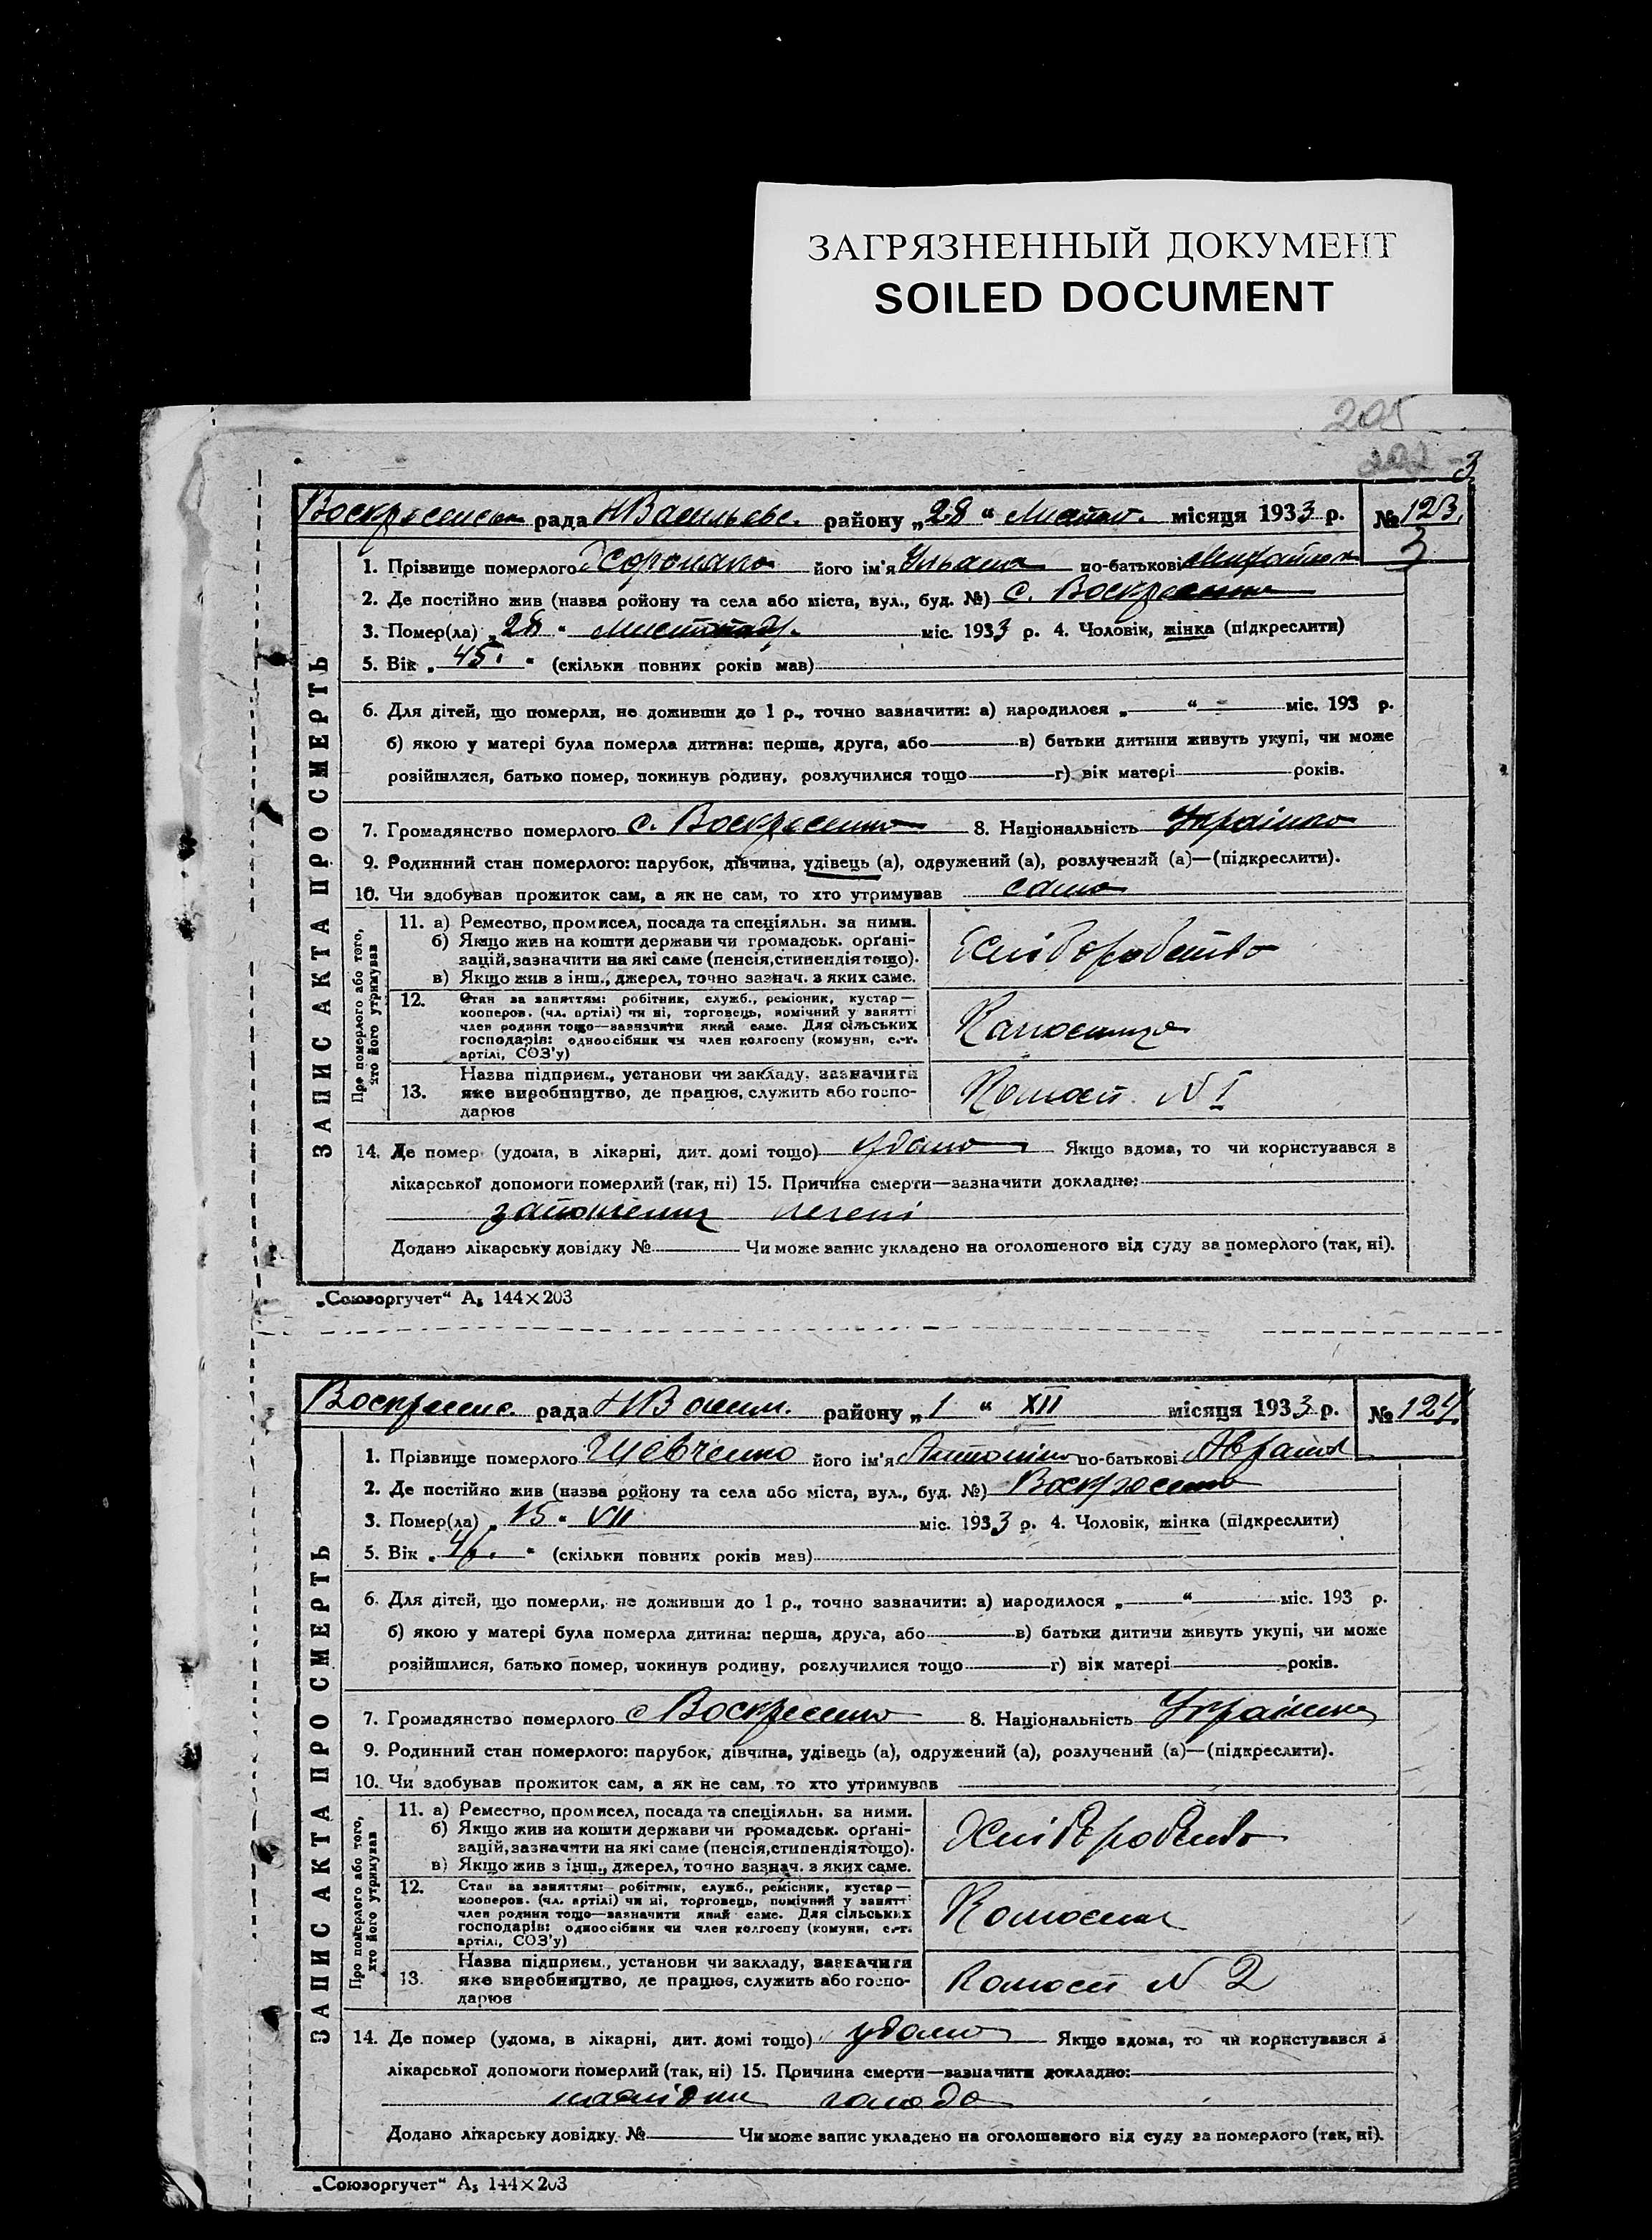 ЗАГРЯЗНЕННЫЙ ДОКУМЕНТ
SOILED DOCUMENT
205
3
рада район у „28“ місяця 1933 р. № 123
3
ЗАПИС АКТА ПРО СМЕРТЬ
1. Прізвище померлого його ім'я Уляна по-батькові
2. Де постійно жив (назва ройону та села або міста, вул., буд. №) с. Воскресенка
3. Помер(ла) „28“ Листопаду. міс. 1933 р. 4. Чоловік, жінка (підкреслити)
5. Вік „45.“ (скільки повних років мав)
6. Для дітей, що померли, не доживши до 1 р., точно зазначити: а) народилося „ “ міс. 193 р.
б) якою у матері була померла дитина: перша, друга, або в) батьки дитини живуть укупі, чи може
розійшлися, батько помер, покинув родину, розлучилися тощо г) вік матері років.
7. Громадянство померлого с. Воскресенка 8. Національність Українка
9. Родинний стан померлого: парубок, дівчина, удівець (а), одружений (а), розлучений (а)—(підкреслити).
10. Чи здобував прожиток сам, а як не сам, то хто утримував сама
Про померлого або того, хто його утримував
11. а) Ремество, промисел, посада та спеціяльн. за ними.
б) Якщо жив на кошти держави чи громадськ. орґані-
зацій, зазначити на які саме (пенсія, стипендія тощо).
в) Якщо жив з інш., джерел, точно зазнач. з яких саме.
Хліборобство
12. Стан за заняттям: робітник, служб., ремісник, кустар—
кооперов. (чл. артілі) чи ні, торговець, помічний у занятті
член родини тощо—зазначити який саме. Для сільських
господарів: одноосібник чи член колгоспу (комуни, с.-г.
артілі, СОЗ'у)
13. Назва підприєм., установи чи закладу, зазначити
яке виробництво, де працює, служить або госпо-
дарює
Колгосп N I
14. Де помер (удома, в лікарні, дит. домі тощо) удома Якщо вдома, то чи користувався з
лікарської допомоги померлий (так, ні) 15. Причина смерти—зазначити докладно:
запаленння легені
Додано лікарську довідку № Чи може запис укладено на оголошеного від суду за померлого (так, ні).
„Союзоргучет“ А₅ 144×203
рада району „1“ XII місяця 1933 р. № 124.
ЗАПИС АКТА ПРО СМЕРТЬ
1. Прізвище померлого Шевченко його ім'я по-батькові
2. Де постійно жив (назва ройону та села або міста, вул., буд. №) Воскресенка
3. Помер(ла) „15“ VII міс. 1933 р. 4. Чоловік, жінка (підкреслити)
5. Вік „ “ (скільки повних років мав)
6. Для дітей, що померли, не доживши до 1 р., точно зазначити: а) народилося „ “ міс. 193 р.
б) якою у матері була померла дитина: перша, друга, або в) батьки дитини живуть укупі, чи може
розійшлися, батько помер, покинув родину, розлучилися тощо г) вік матері років.
7. Громадянство померлого с Воскресенка 8. Національність Українка
9. Родинний стан померлого: парубок, дівчина, удівець (а), одружений (а), розлучений (а)—(підкреслити).
10. Чи здобував прожиток сам, а як не сам, то хто утримував
Про померлого або того, хто його утримував
11. а) Ремество, промисел, посада та спеціяльн. за ними.
б) Якщо жив на кошти держави чи громадськ. орґані-
зацій, зазначити на які саме (пенсія, стипендія тощо).
в) Якщо жив з інш., джерел, точно зазнач. з яких саме.
Хліборобство
12. Стан за заняттям: робітник, служб., ремісник, кустар—
кооперов. (чл. артілі) чи ні, торговець, помічний у занятті
член родини тощо—зазначити який саме. Для сільських
господарів: одноосібник чи член колгоспу (комуни, с.-г.
артілі, СОЗ'у)
13. Назва підприєм., установи чи закладу, зазначити
яке виробництво, де працює, служить або госпо-
дарює
Колгосп N 2
14. Де помер (удома, в лікарні, дит. домі тощо) удома Якщо вдома, то чи користувався з
лікарської допомоги померлий (так, ні) 15. Причина смерти—зазначити докладно:
голода
Додано лікарську довідку № Чи може запис укладено на оголошеного від суду за померлого (так, ні).
„Союзоргучет“ А₅ 144×203